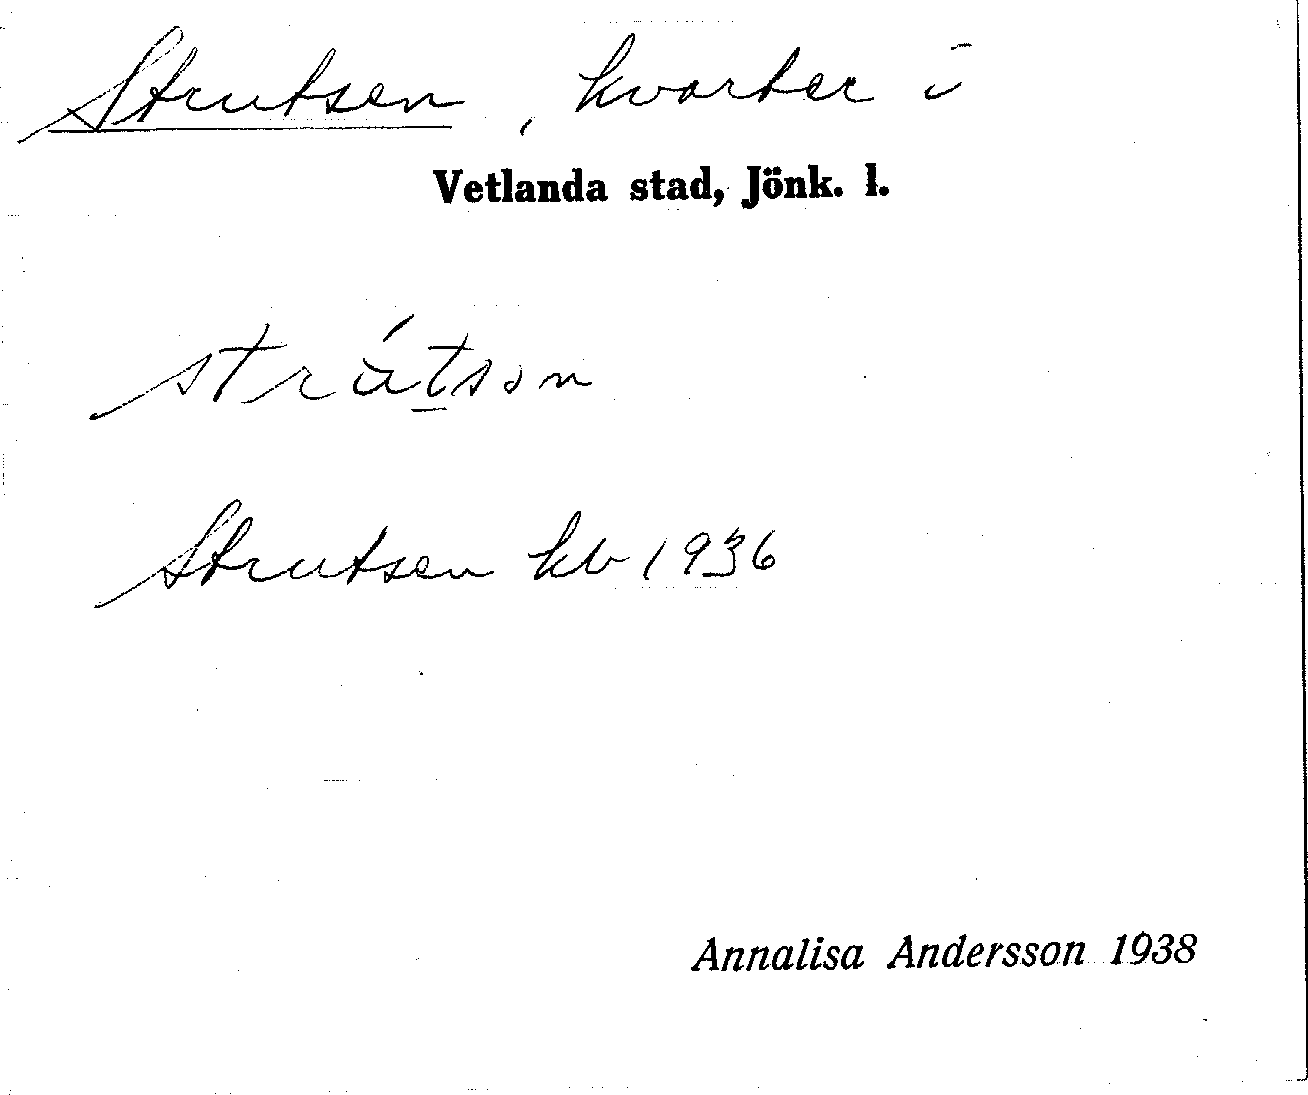 Strutsen, kvarter i
Vetlanda stad, Jönk. l.
Strutsen kb 1936
Annalisa Andersson 1938